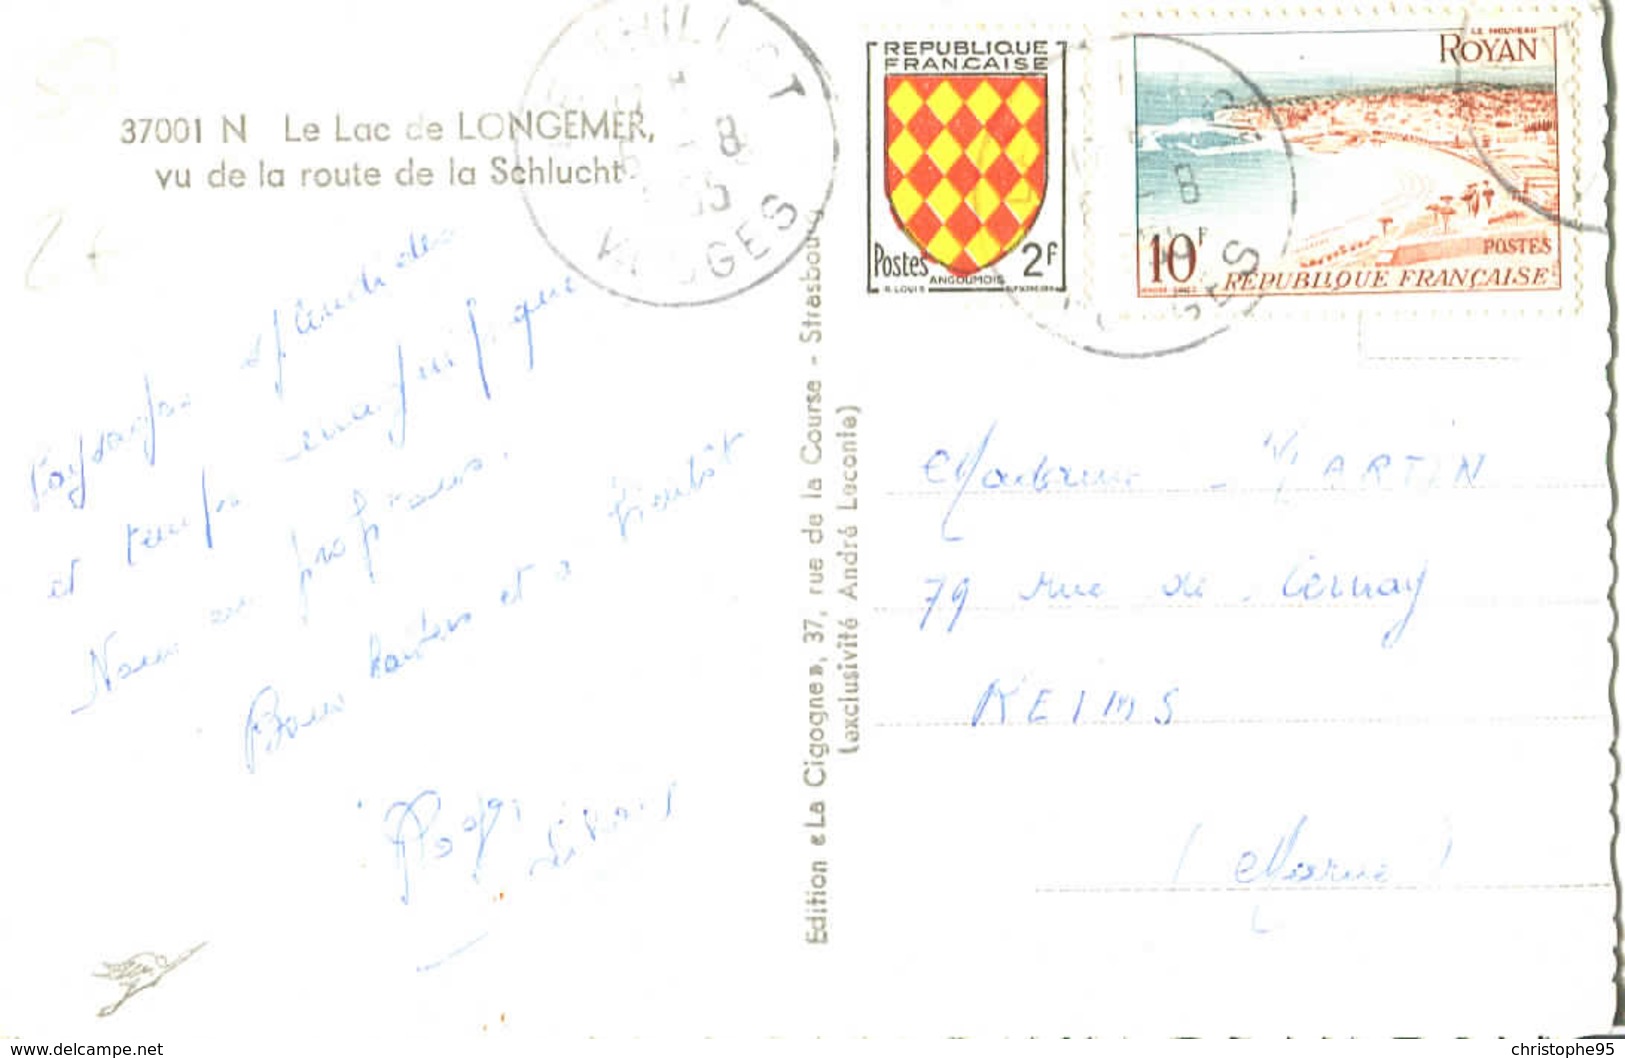 37001 N Le Lac de LONGEMER,
vu de la route de la Schlucht
VOSGES
8
REPUBLIQUE
FRANCAISE
Postes 2F
ANGOUMOIS
LE NOUVEAU
ROYAN
10F
POSTES
REPUBLIQUE FRANÇAISE
8
Paysages splendides
et temps magnifique
Nous en profitons.
Bons baisers et à bientôt
Madame MARTIN
79 rue de Cernay
REIMS
(Marne)
Edition «La Cigogne», 37, rue de la Course - Strasbourg
(exclusivité André Leconte)
www.delcampe.net
christophe95